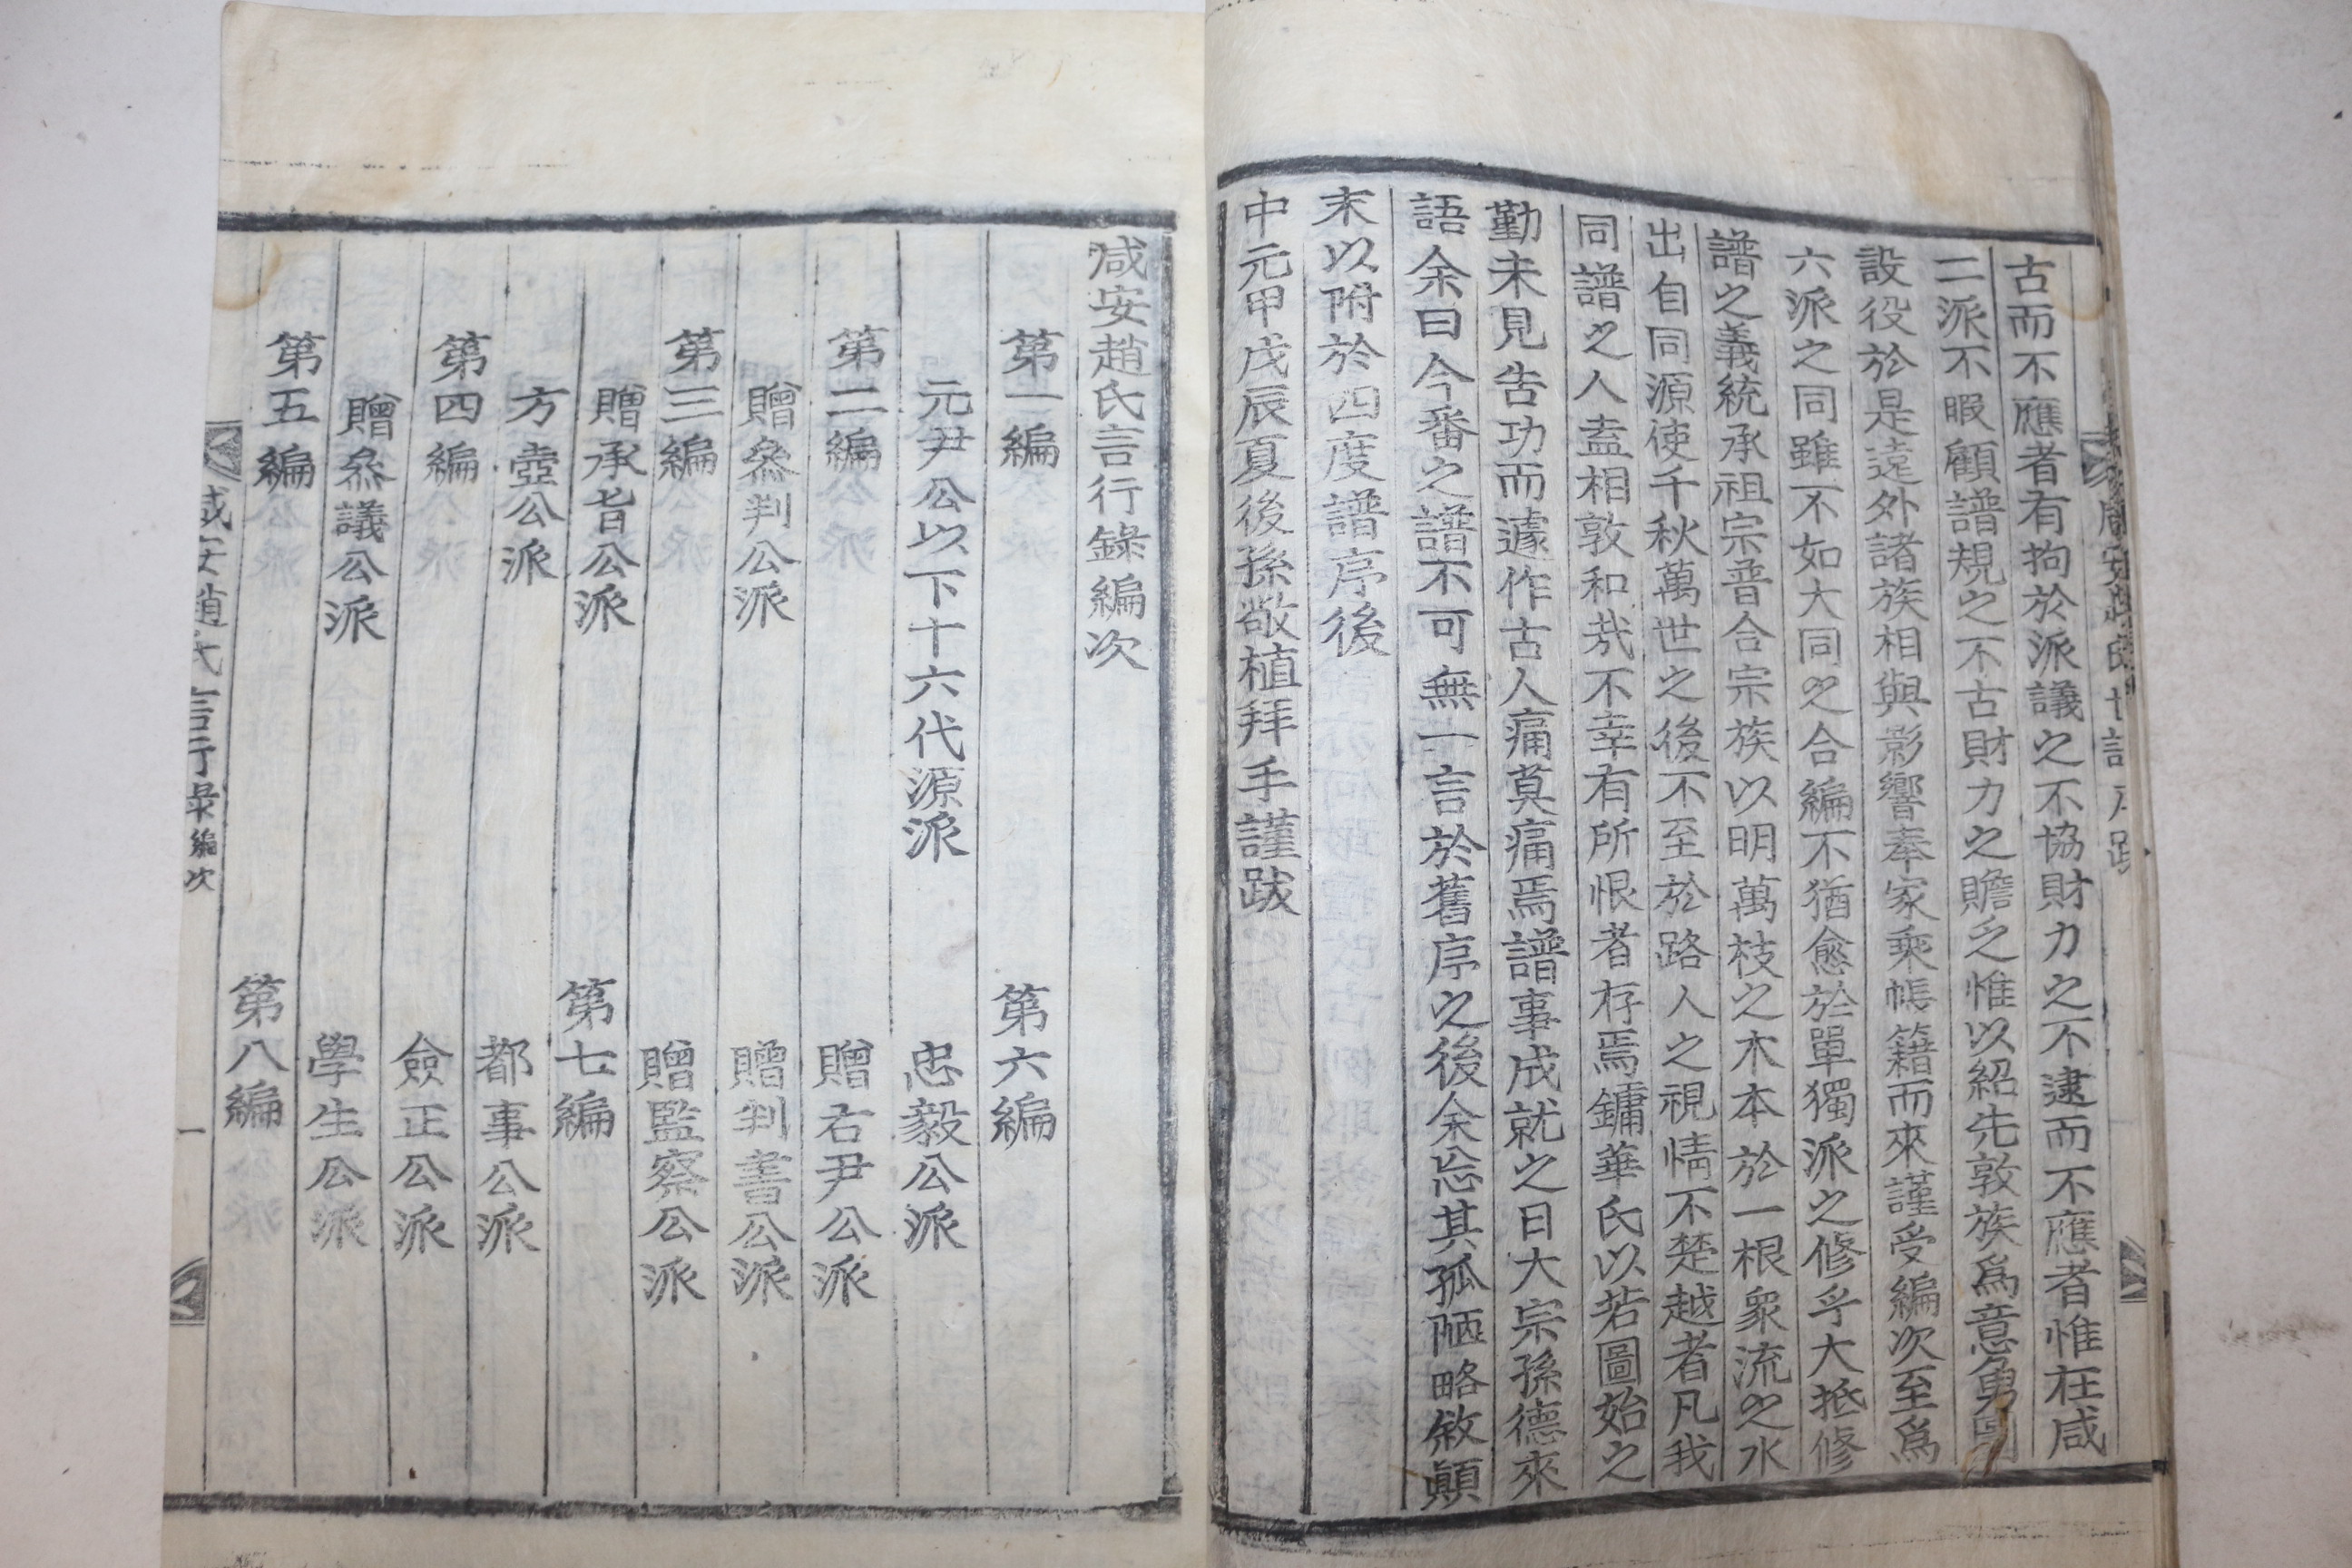 古而不應者有拘於派議之不協財力之不逮而不應者惟在咸
二派不暇顧譜規之不古財力之贍乏惟以紹先敦族爲意勇圖
設役於是遠外諸族相與影響奉家乘帳籍而來謹受編次至爲
六派之同雖不如大同之合編不猶愈於單獨派之修乎大抵修
譜之義統承祖宗普合宗族以明萬枝之木本於一根衆流之水
出自同源使千秋萬世之後不至於路人之視情不楚越者凡我
同譜之人盍相敦和哉不幸有所恨者存焉鏞華氏以若圖始之
勤未見告功而遽作古人痛莫痛焉譜事成就之日大宗孫德來
語余曰今番之譜不可無一言於舊序之後余忘其孤陋略敘顚
末以附於四度譜序後
中元甲戌辰夏後孫敬植拜手謹跋
咸安趙氏言行錄編次
第一編
元尹公以下十六代源派
第二編
贈叅判公派
第三編
贈承旨公派
方壺公派
第四編
贈叅議公派
第五編
第六編
忠毅公派
贈右尹公派
贈判書公派
贈監察公派
第七編
都事公派
僉正公派
學生公派
第八編
咸安趙氏言行錄 編次
一